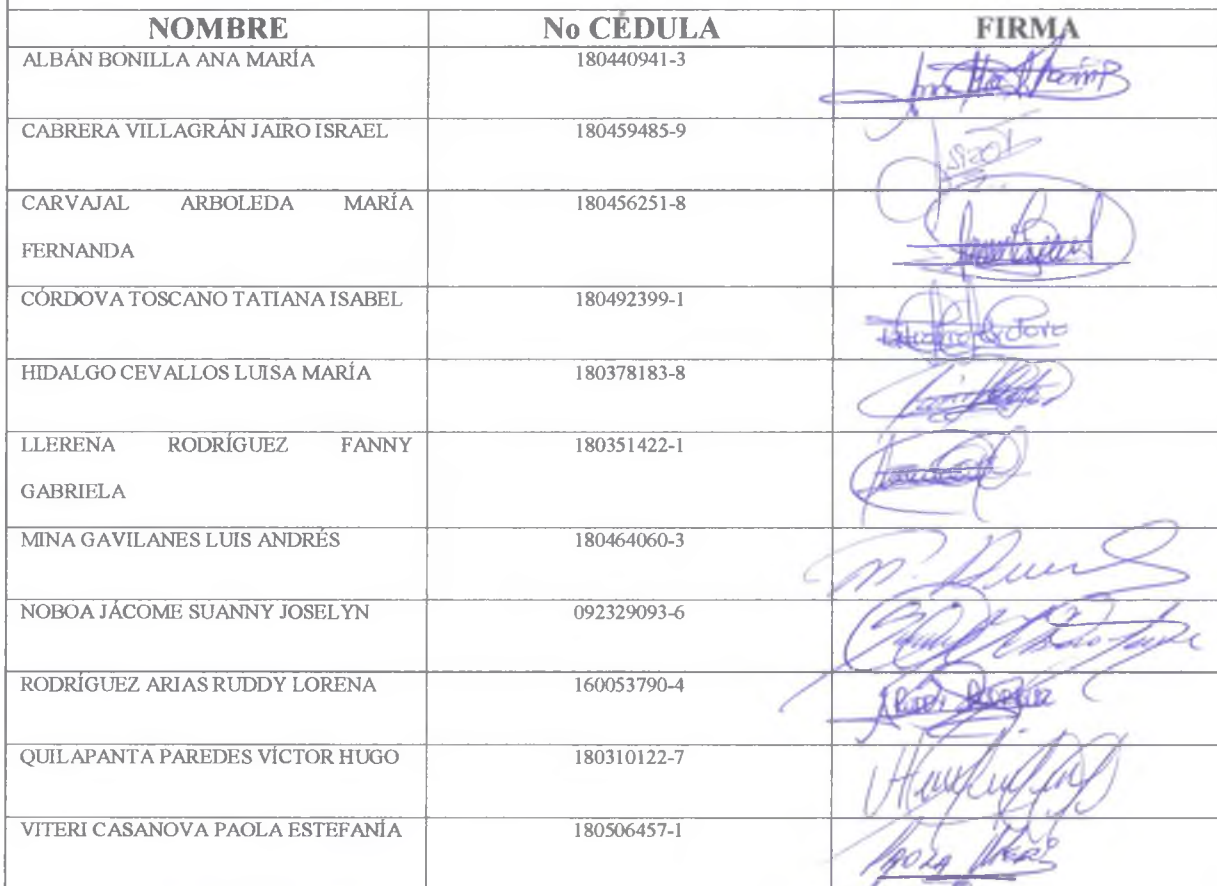 NOMBRE No CÉDULA FIRMA
ALBÁN BONILLA ANA MARÍA 180440941-3
CABRERA VILLAGRÁN JAIRO ISRAEL 180459485-9
CARVAJAL ARBOLEDA MARÍA 180456251-8
FERNANDA
CÓRDOVA TOSCANO TATIANA ISABEL 180492399-1
HIDALGO CEVALLOS LUISA MARÍA 180378183-8
LLERENA RODRÍGUEZ FANNY 180351422-1
GABRIELA
MINA GAVILANES LUIS ANDRÉS 180464060-3
NOBOA JÁCOME SUANNY JOSELYN 092329093-6
RODRÍGUEZ ARIAS RUDDY LORENA 160053790-4
QUILAPANTA PAREDES VÍCTOR HUGO 180310122-7
VITERI CASANOVA PAOLA ESTEFANÍA 180506457-1
PAOLA VITERI